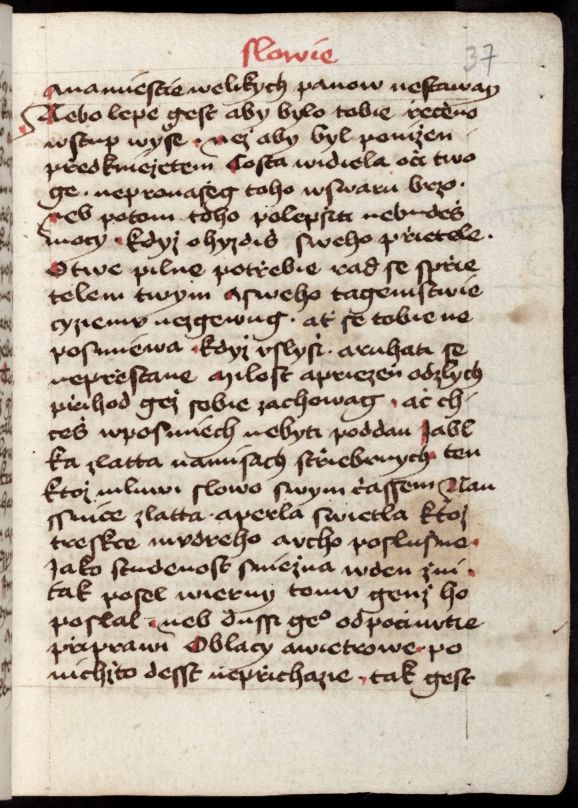 slowie
37
Ana miestie welikych panow nestaway
Nebo lepe gest aby bylo tobie rčeno
wstup wyše · než aby byl ponižen
předknieżetem Costa widiela oči two
ge · nepronašeg toho wswaru brzo ·
neb potom toho polepšiti nebudeš
mocy · když ohyzdiš sweho přietele ·
Otwe pilne potřebie rad se sprie
telem twym Asweho tagemstwie
cyziemu nezgewug · ať se tobie ne
posmiewa · když uslyší · aruhati se
nepřestane Milost apriezeň odzlych
přihod gež sobie zachowag · ač ch
ceš wposmiech nebyti poddan Jabl
ka zlatta namisach střiebrnych ten
ktož mluwi slowo swym časem Nau
ssnice zlatta · aperla swietla ktož
tresce mudreho aucho poslušne ·
Jako studenost sniežna wden žni ·
tak posel wierny tomu genž ho
poslal · neb dussi geo odpočinutie
připrawi Oblacy awietrowe · po
nichžto dessť nepřichazie · tak gest